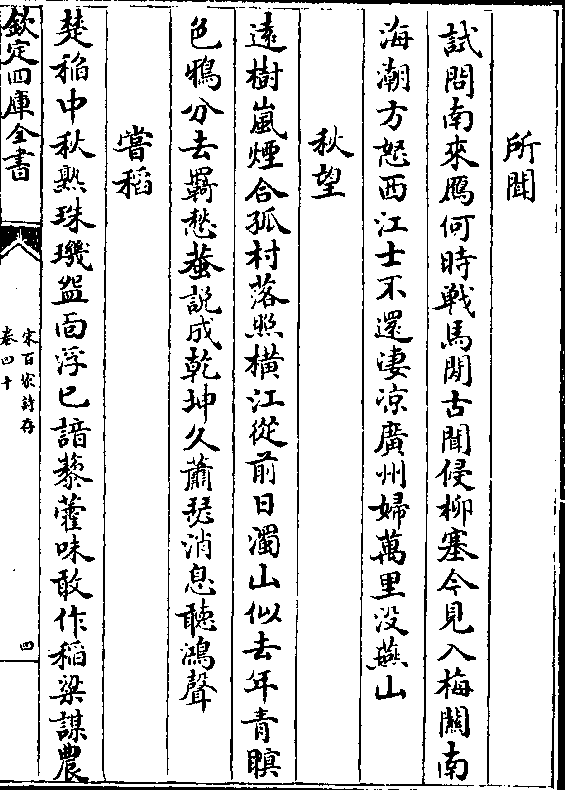 所聞
試問南來鴈何時戰馬閒古聞侵柳塞今見入梅關南
海潮方怒西江士不還淒凉廣州婦萬里没燕山
秋望
遠樹嵐煙合孤村落照橫江從前日濁山似去年青暝
色鴉分去羇愁蛩説成乾坤久蕭瑟消息聽鴻聲
嘗稻
楚稻中秋熟珠璣盌面浮已諳藜藿味敢作稻粱謀農
欽定四庫全書
宋百家詩存
卷四十
四